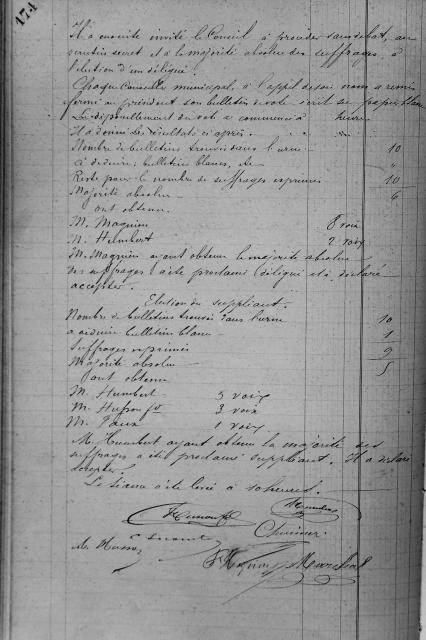 174
Il a ensuite invité le Conseil à procéder sans débat, au
scrutin secret et à la majorité absolue des suffrages, à
l'élection d'un délégué.
Chaque conseiller municipal, à l'appel de son nom a remis
fermé au président son bulletin de vote écrit sur papier blanc
Le dépouillement du vote a commencé à heures
Il a donné les résultats ci après.
Nombre de bulletins trouvés dans l'urne 10
à déduire; bulletins blancs, &c "
Reste pour le nombre de suffrages exprimés 10
Majorité absolue 6
ont obtenu
M. Magnien 8 voix
M. Humbert 2 voix
M. Magnien ayant obtenu la majorité absolue
des suffrages a été proclamé délégué et a déclaré
accepter.
Election du suppléant.
Nombre de bulletins trouvés dans l'urne 10
à déduire bulletin blanc 1
Suffrages exprimés 9
Majorité absolue 5
ont obtenu
M. Humbert 5 voix
M. Husson 3 voix
M. 1 voix
M. Humbert ayant obtenu la majorité des
suffrages a été proclamé suppléant. Il a déclaré
accepter.
La séance a été levée à heures.
M. Husson
Marchal